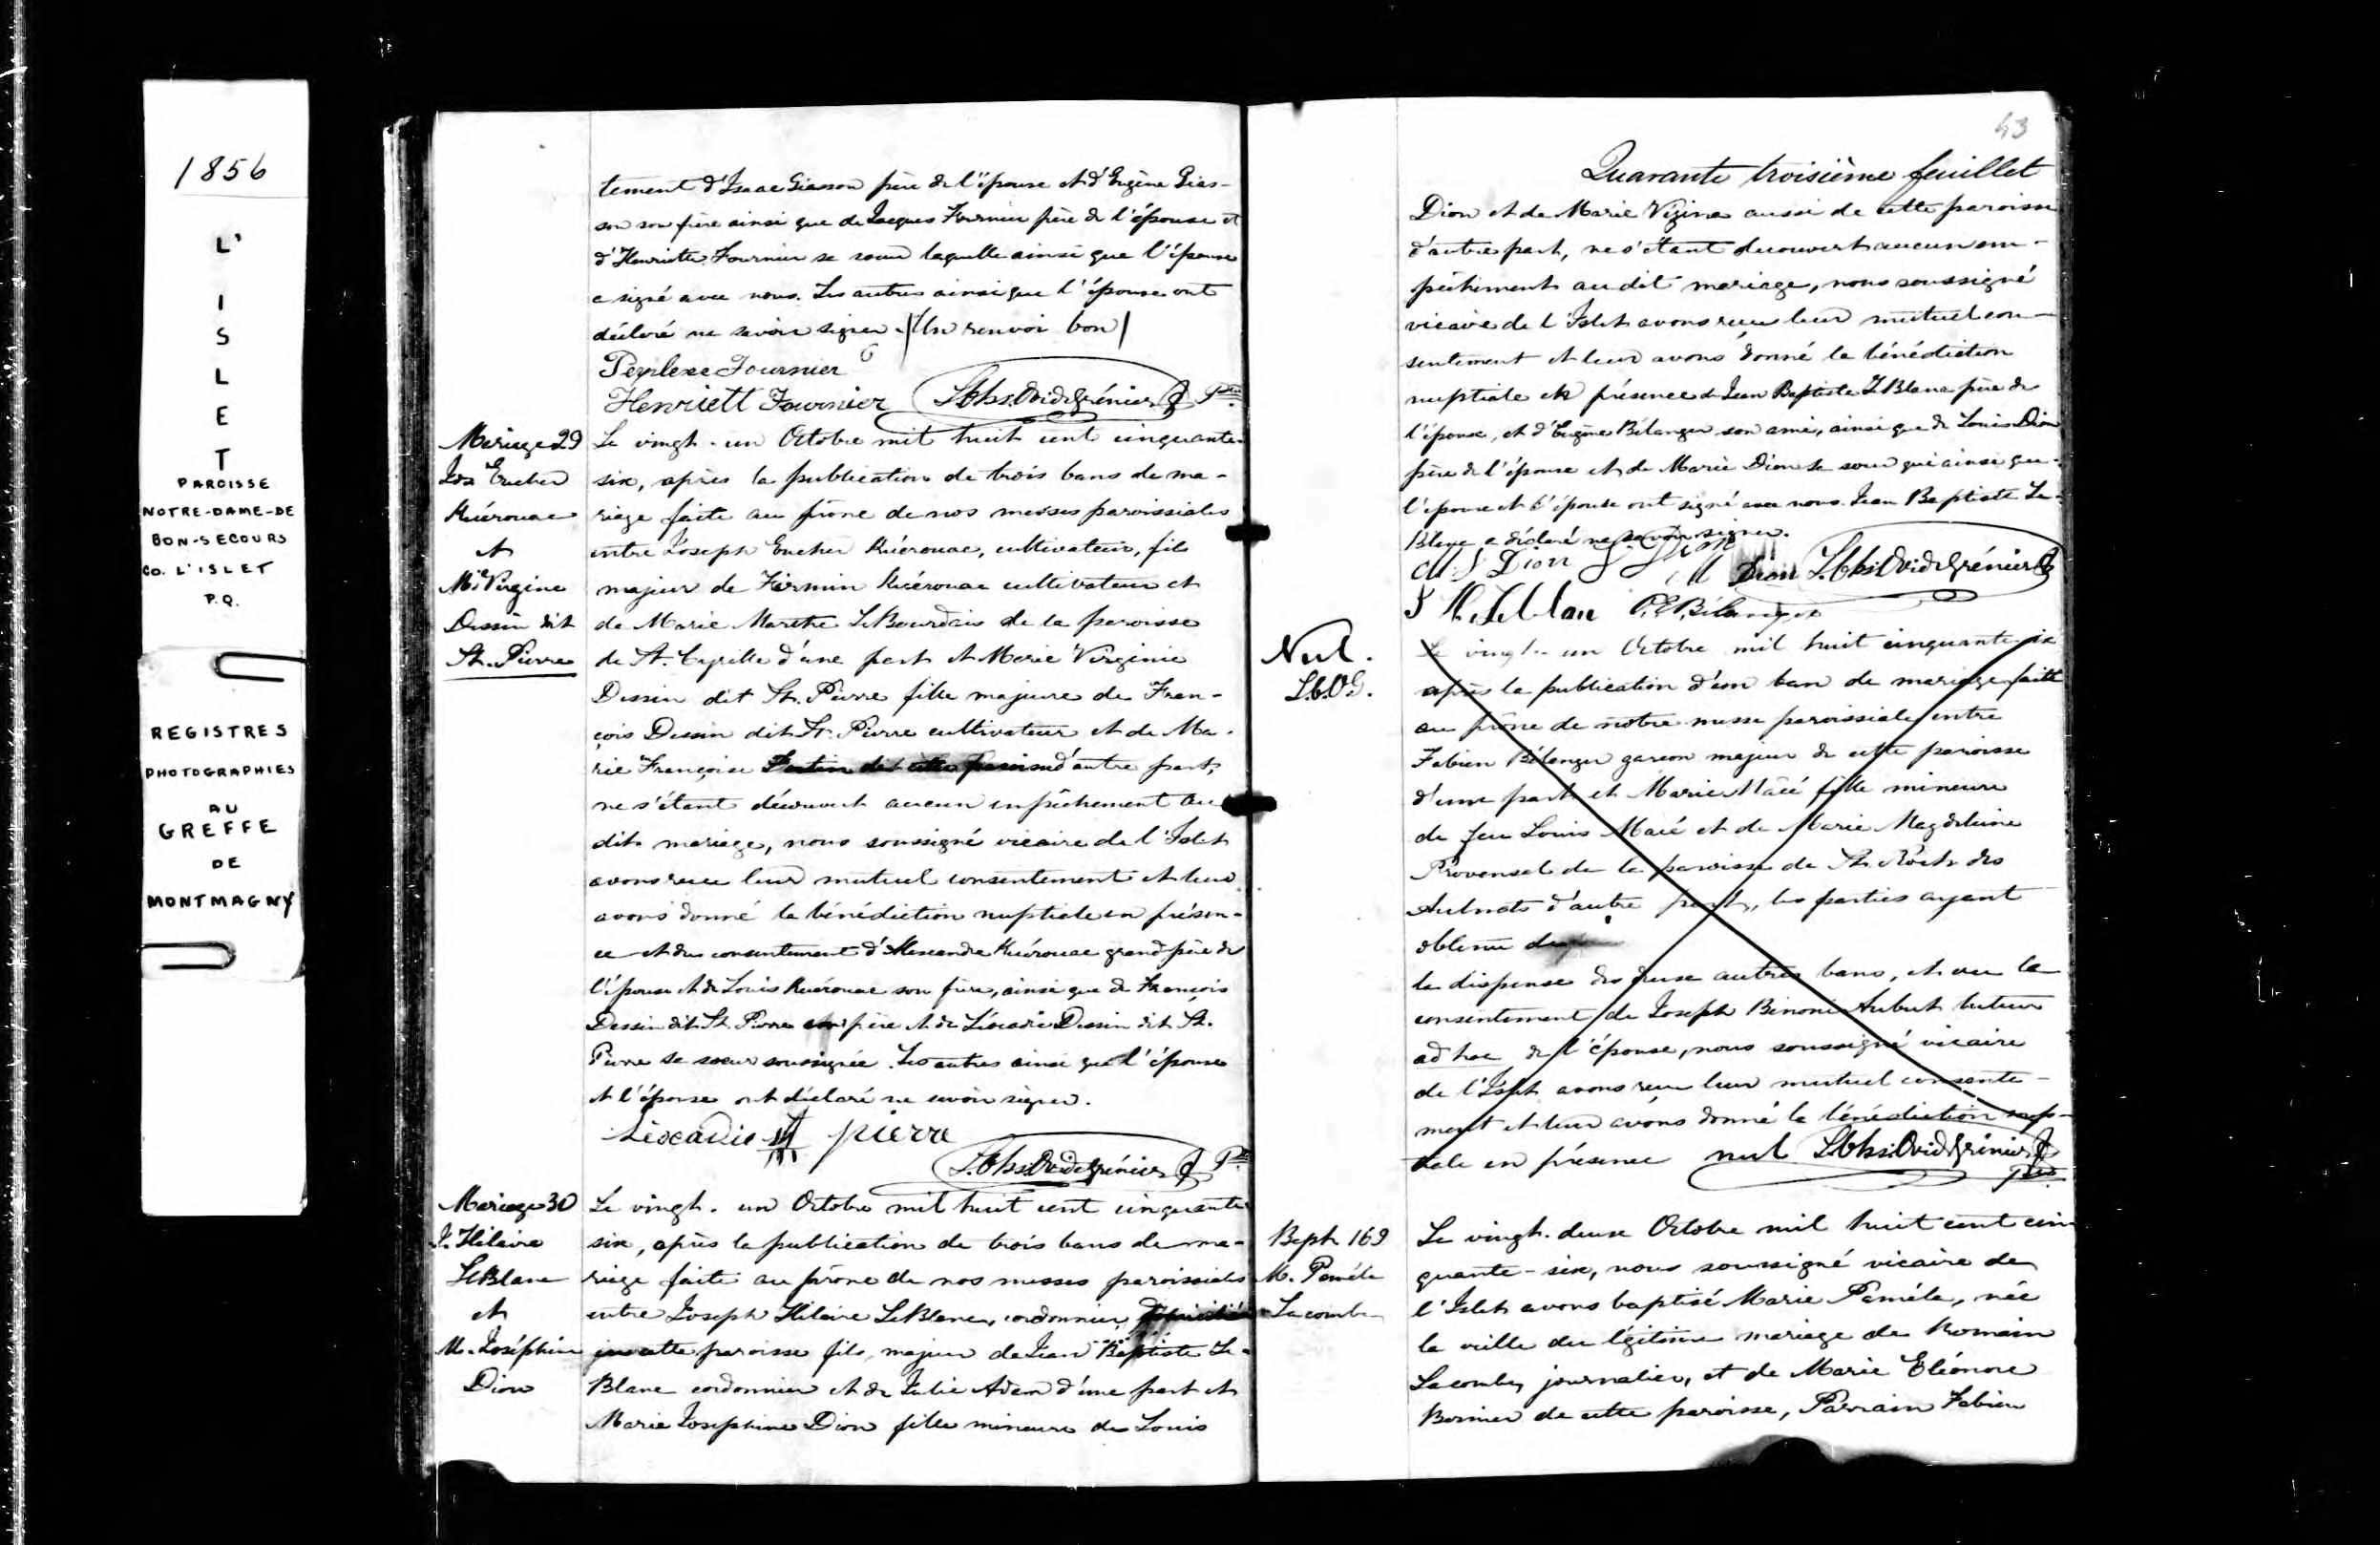 1856
L'
I
S
L
E
T
PAROISSE
NOTRE-DAME-DE
BON-SECOURS
CO. L'ISLET
P.Q.
REGISTRES
PHOTOGRAPHIES
AU
GREFFE
DE
MONTMAGNY
tement d'Isaac Giasson père de l'épouse et d'Eugène Gias-
son son frère ainsi que de Jacques Fournier père de l'épouse et
d'Henriette Fournier sa soeur laquelle ainsi que l'épouse
a signé avec nous. Les autres ainsi que l'époux ont
déclaré ne savoir signer. / Un renvoi bon /
Fournier
Henriett Fournier Ls Chs Ovide Grénier Ptre
Mariage 29
Jos Eucher
Kuérouac
et
Mie Virginie
Dessin dit
St. Pierre
Le vingt-un Octobre mil huit cent cinquante-
six, après la publication de trois bans de ma-
riage faite au prône de nos messes paroissiales
entre Joseph Eucher Kuérouac, cultivateur, fils
majeur de Firmin Kuérouac cultivateur et
de Marie Marthe LeBourdais de la paroisse
de St. Cyrille d'une part et Marie Virginie
Dessin dit St. Pierre fille majeure de Fran-
çois Dessin dit St. Pierre cultivateur et de Ma-
rie Françoise d'autre part,
ne s'étant découvert aucun empêchement au
dit mariage, nous soussigné vicaire de l'Islet
avons reçu leur mutuel consentement et leur
avons donné la bénédiction nuptiale en présen-
ce et du consentement d'Alexandre Kuérouac grand père de
l'époux et de Louis Kuérouac son frère, ainsi que de François
Dessin dit St. Pierre père et de Léocadie Dessin dit St.
Pierre sa soeur soussignée. Les autres ainsi que l'époux
et l'épouse ont déclaré ne savoir signer.
Léocadie St pierre
Ls Chs Ovide Grénier Ptre
Mariage 30
J. Hilaire
LeBlanc
et
M. Joséphine
Dion
Le vingt-un Octobre mil huit cent cinquante
six, après la publication de trois bans de ma-
riage faite au prône de nos messes paroissiales
entre Joseph Hilaire LeBlanc, cordonnier,
cette paroisse fils majeur de Jean Baptiste Le-
Blanc cordonnier et de Julie Adam d'une part et
Marie Joséphine Dion fille mineure de Louis
43
Quarante troisième feuillet
Dion et de Marie Vézina aussi de cette paroisse
d'autre part, ne s'étant découvert aucun em-
pêchement au dit mariage, nous soussigné
vicaire de l'Islet avons reçu leur mutuel con-
sentement et leur avons donné la bénédiction
nuptiale en présence de Jean Baptiste LeBlanc père de
l'époux, et d'Eugène Bélanger son ami, ainsi que de Louis Dion
père de l'épouse et de Marie Dion sa soeur qui ainsi que
l'époux et l'épouse ont signé avec nous. Jean Baptiste Le-
Blanc a déclaré ne savoir signer.
M J Dion
M Dion Ls Chs Ovide Grénier
J H Leblan P. E Bélanger
Nul.
L.C.O.G.
Le vingt-un Octobre mil huit cinquante six
après la publication d'un ban de mariage faite
au prône de notre messe paroissiale entre
Fabien Bélanger garcon majeur de cette paroisse
d'une part et Marie Macé fille mineure
de feu Louis Macé et de Marie Magdeleine
Provensal de la paroisse de St. Roch des
Aulnets d'autre part, les parties ayant
obtenu
la dispense des deux autres bans, et vu le
consentement de Joseph Binoni Aubut tuteur
ad hoc de l'épouse, nous soussigné vicaire
de l'Islet avons reçu leur mutuel consente-
ment et leur avons donné la bénédiction nup-
tiale en présence nul Ls Chs Ovide Grénier
Ptre
Bapt. 169
M. Paméla
Lacombe
Le vingt-deux Octobre mil huit cent cin
quante-six, nous soussigné vicaire de
l'Islet avons baptisé Marie Paméla, née
la veille du légitime mariage de Romain
Lacombe, journalier, et de Marie Eléonore
Bernier de cette paroisse, Parrain Fabien